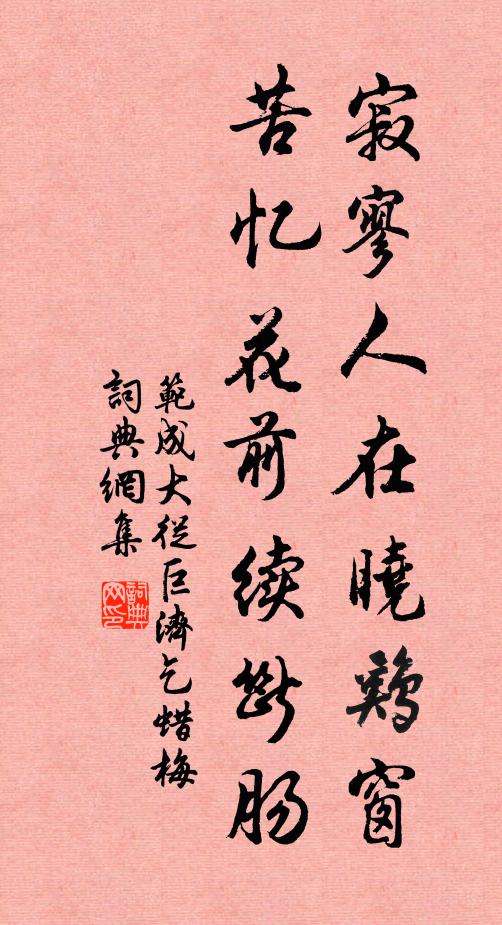 寂寥人在曉鷄窗
苦忆花前续断肠
範成大從巨濟乞蜡梅
詞典網集
詞典网印